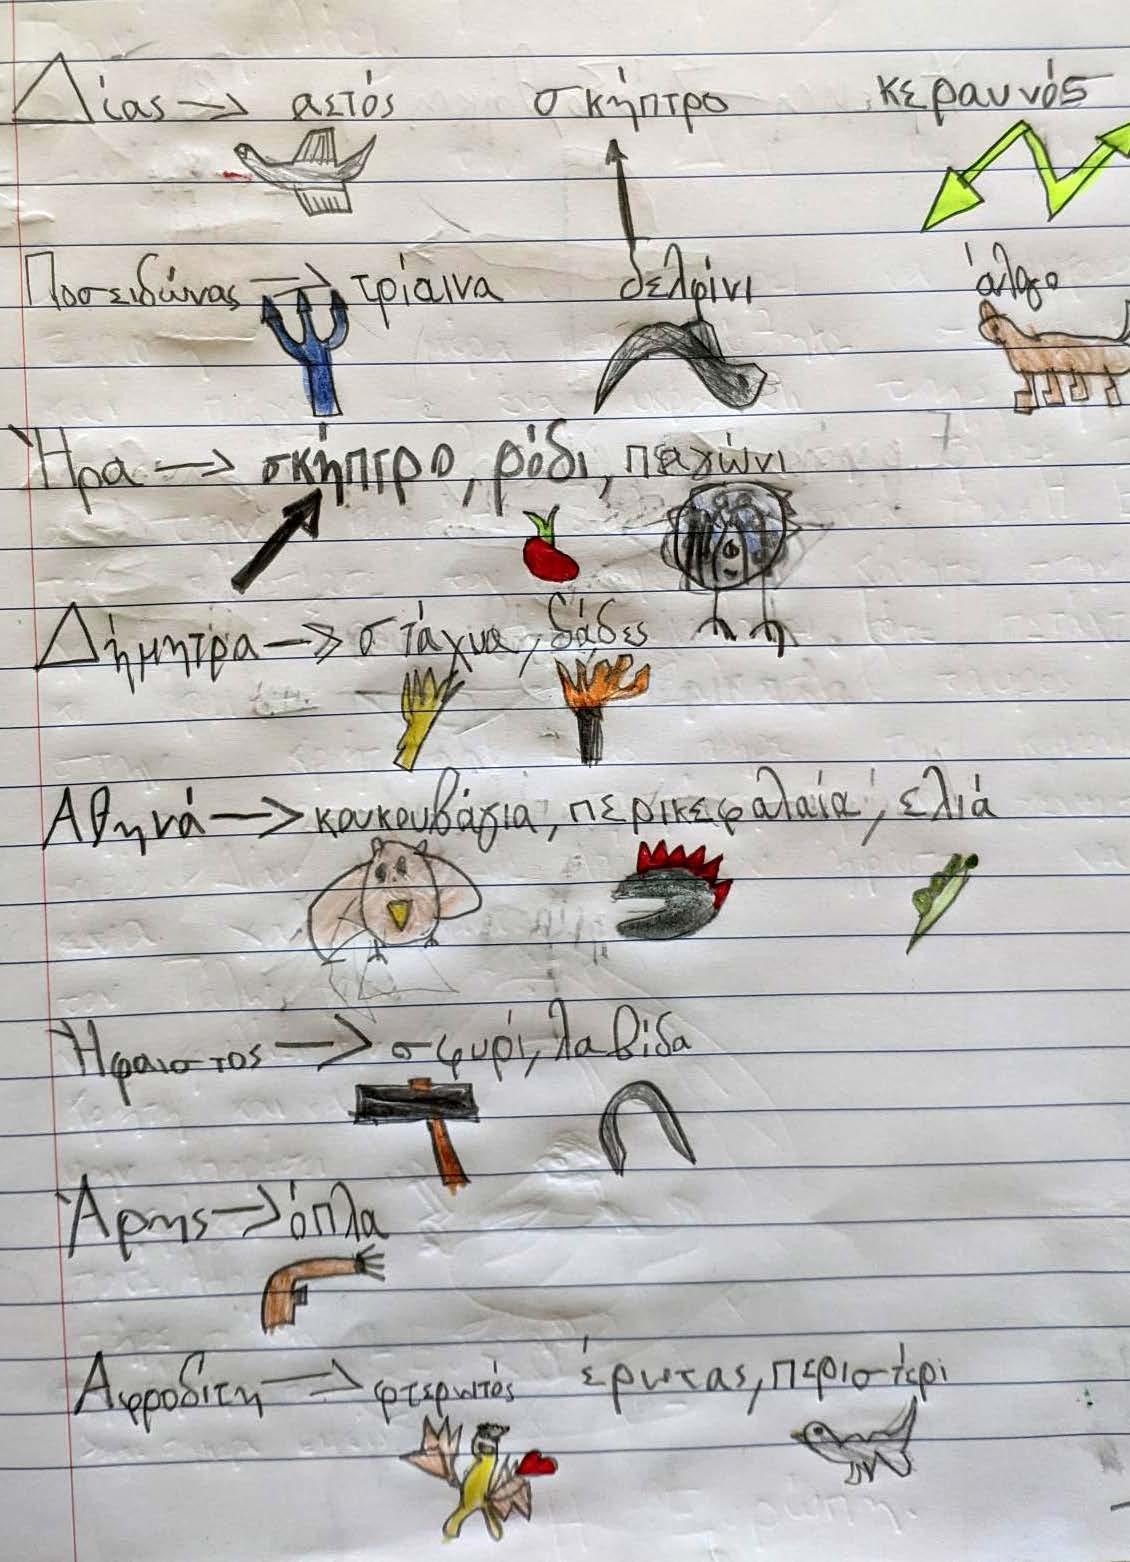 Δίας → αετός σκήπτρο κεραυνός
Ποσειδώνας → τρίαινα δελφίνι άλογο
Ήρα → σκήπτρο, ρόδι, παγώνι
Δήμητρα → στάχυα, δάδες
Αθηνά → κουκουβάγια, περικεφαλαία, ελιά
Ήφαιστος → σφυρί, λαβίδα
Άρης → όπλα
Αφροδίτη → φτερωτός έρωτας, περιστέρι